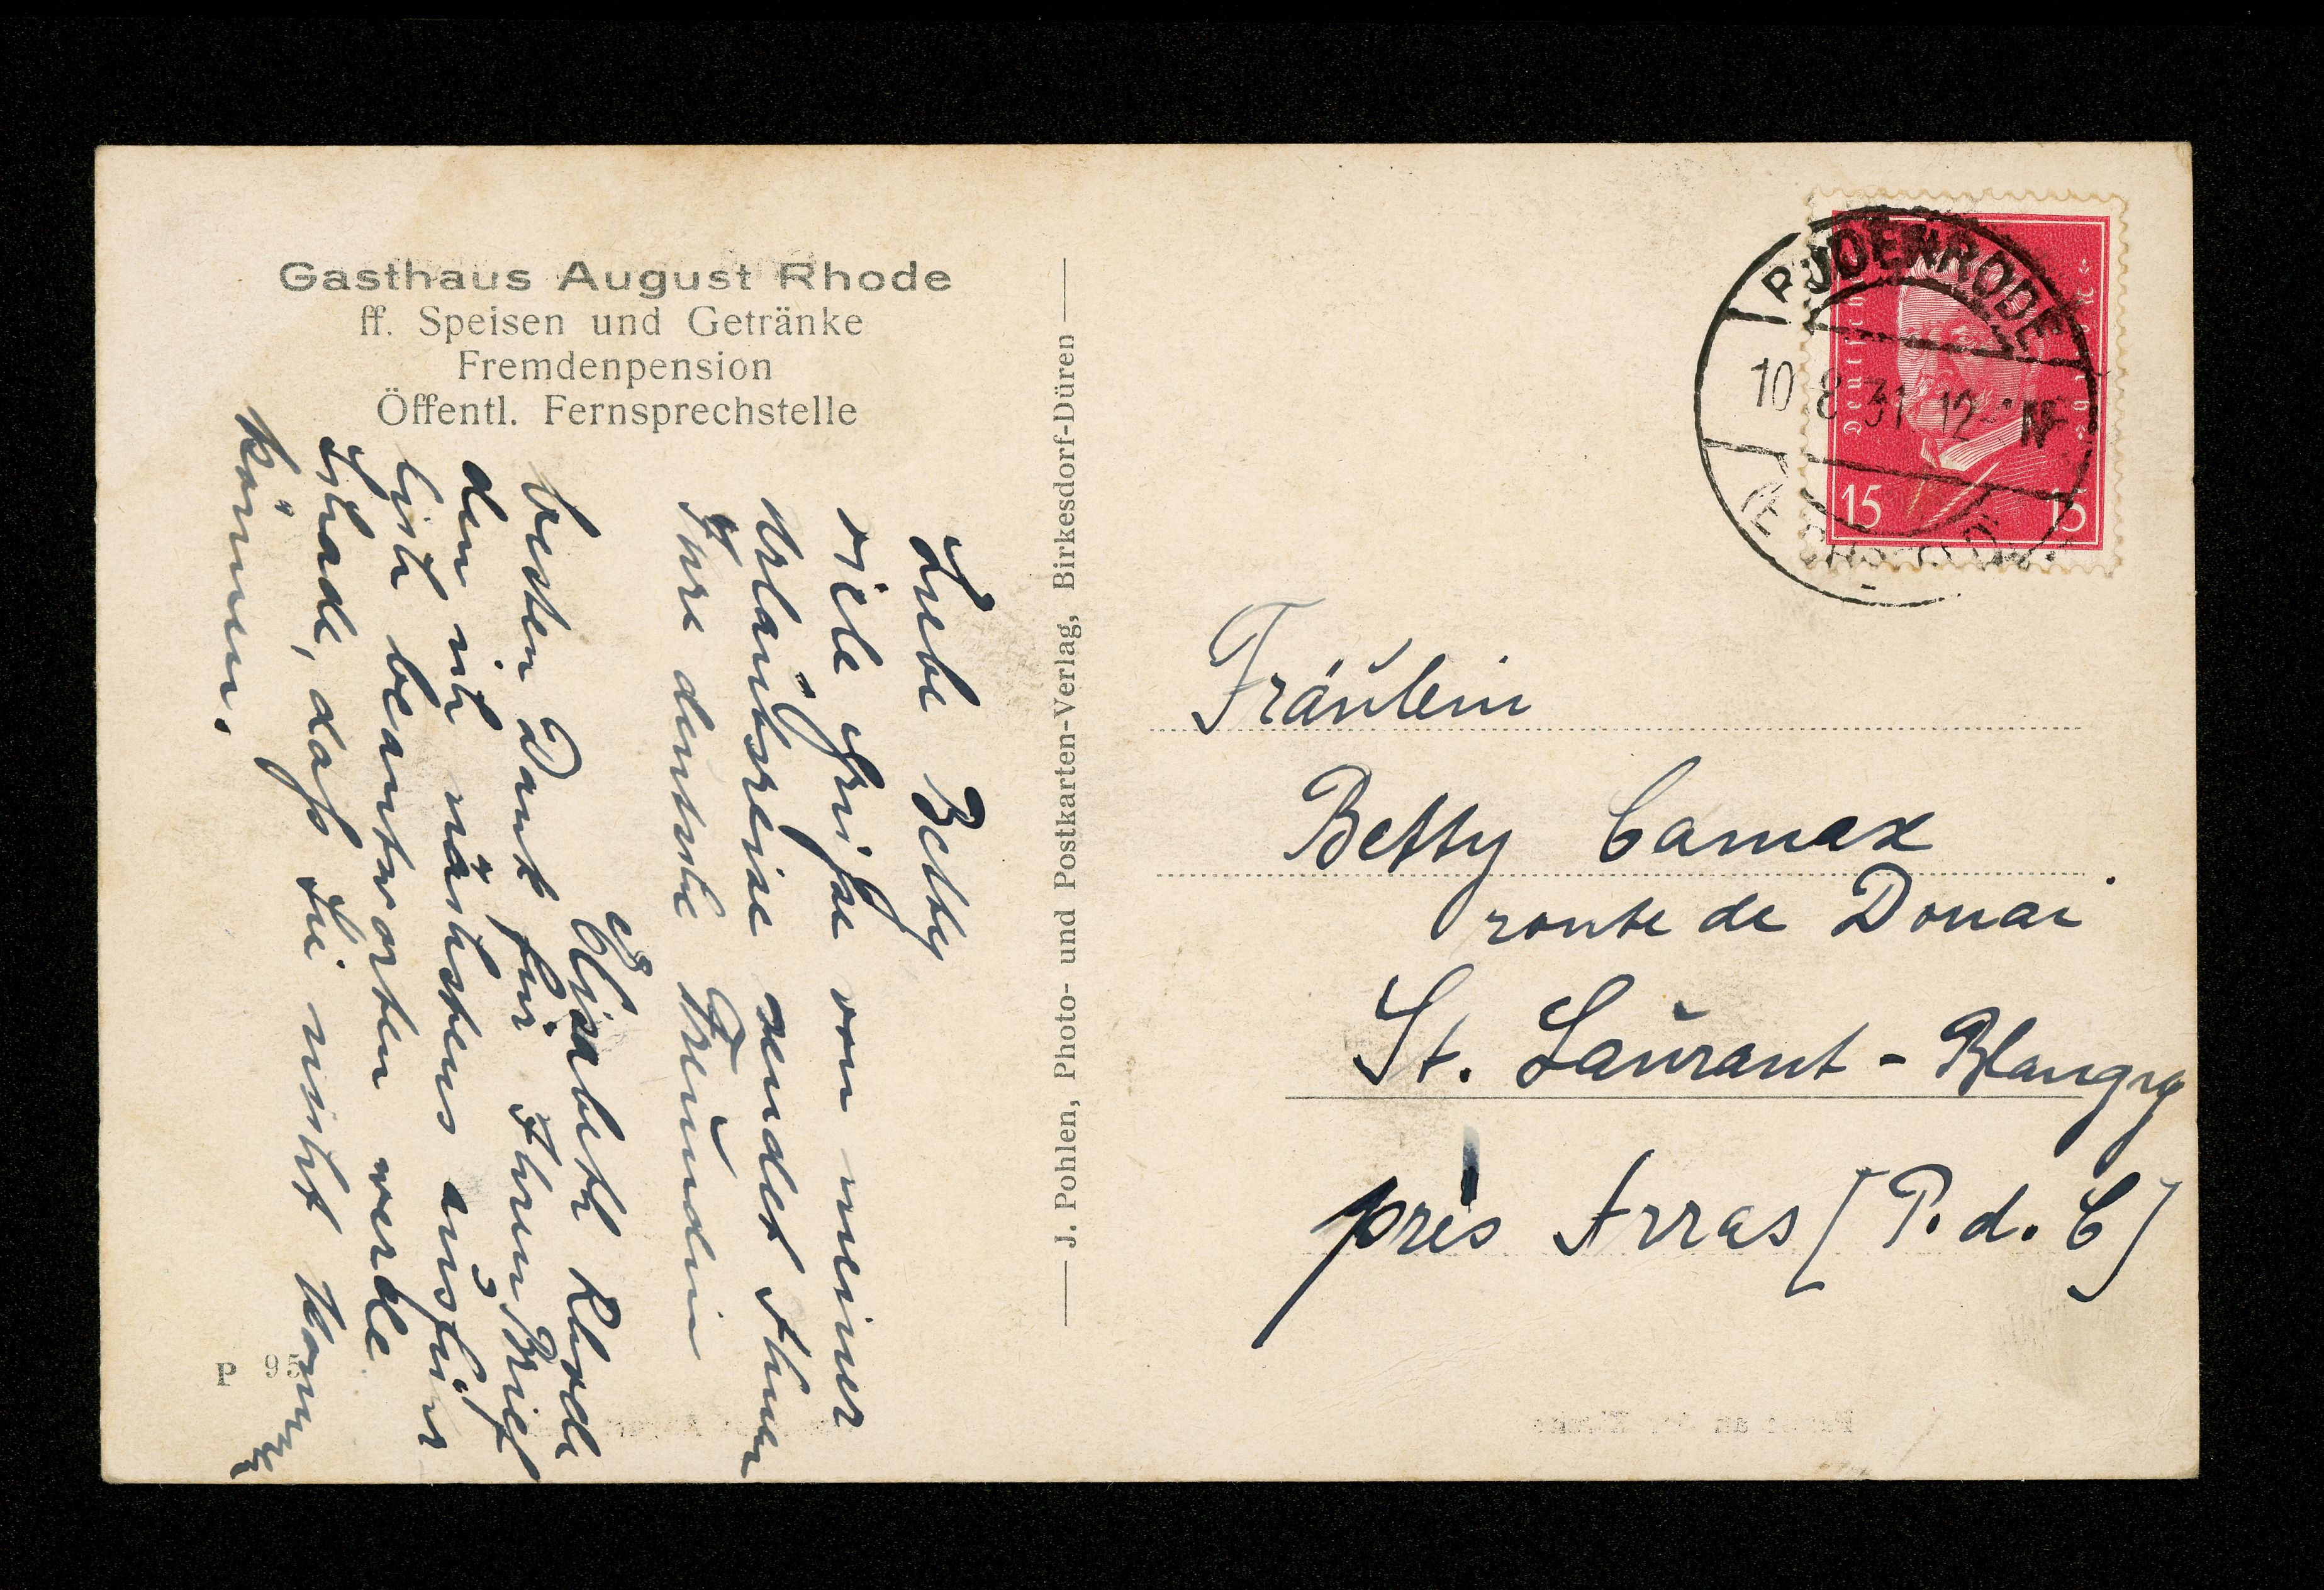 Gasthaus August Rhode
ff. Speisen und Getränke
Fremdenpension
Öffentl. Fernsprechstelle
Liebe Betty
viele Grüße von meiner
Urlaubsreise sendet Ihnen
Ihre deutsche Freundin
Elisabeth Rhode
besten Dank für Ihren Brief
den ich nächstens ausführ
lich beantworten werde
Schade, daß Sie nicht kommen
können.
P 95
J. Pohlen, Photo- und Postkarten-Verlag, Birkesdorf-Düren
RÜDENRODE
10 8 31 12- N
Deutsches Reich
15 15
Fräulein
Betty Camax
route de Douai
St. Laurant - Blangy
près Arras [P. d. C]